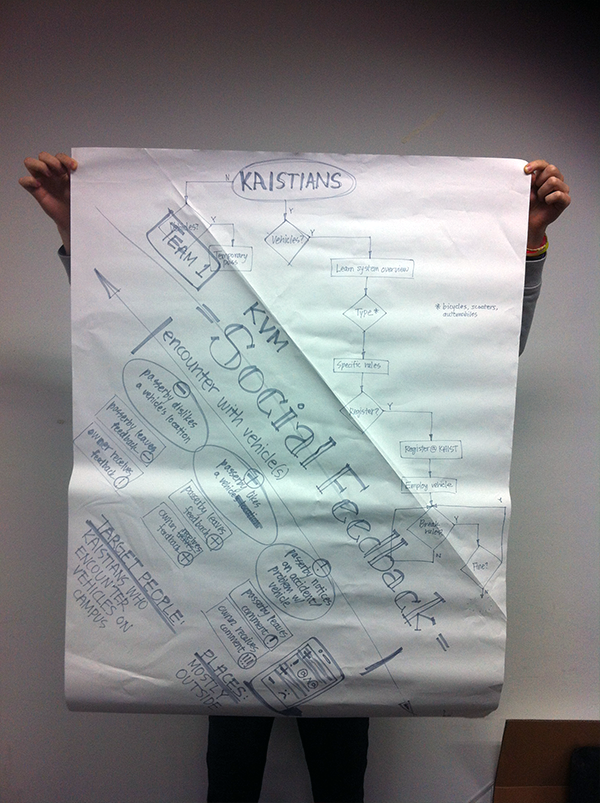 KAISTIANS
N
Y
Vehicles?
Y
Vehicles?
Y
Temporary
pass
Learn system overview
Type*
* bicycles, scooters,
automobiles
Specific rules
Register?
Y
Register @ KAIST
Employ vehicle
Break
rules?
Y
N
Fine?
TEAM 1
KVM
= Social Feedback =
(encounter with vehicles)
passerby dislikes
a vehicle's location
passerby leaves
feedback
owner receives
feedback
passerby likes
a vehicle
passerby leaves
feedback
owner receives
feedback
passerby notices
an accident/
problem w/
vehicle
passerby leaves
comment
owner receives
comment
TARGET PEOPLE:
KAISTIANS WHO
ENCOUNTER
VEHICLES ON
CAMPUS
PLACES:
MOSTLY
OUTSIDE